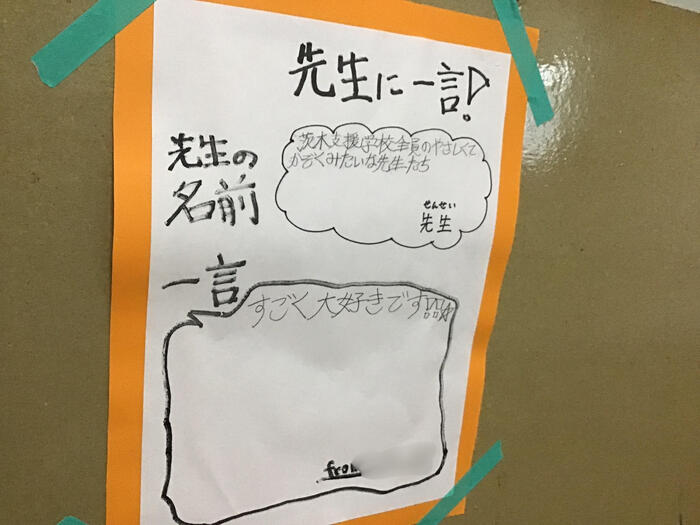 先生に一言!
先生の
名前
茨木支援学校全員のやさしくて
かぞくみたいな先生たち
せんせい
先生
一言
すごく大好きです
from